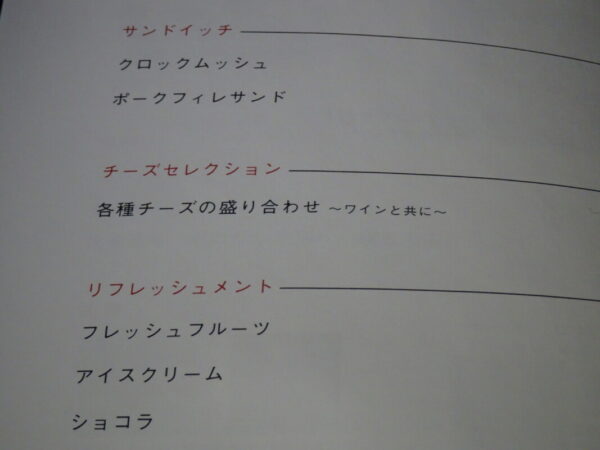 サンドイッチ
クロックムッシュ
ポークフィレサンド
チーズセレクション
各種チーズの盛り合わせ ～ワインと共に～
リフレッシュメント
フレッシュフルーツ
アイスクリーム
ショコラ